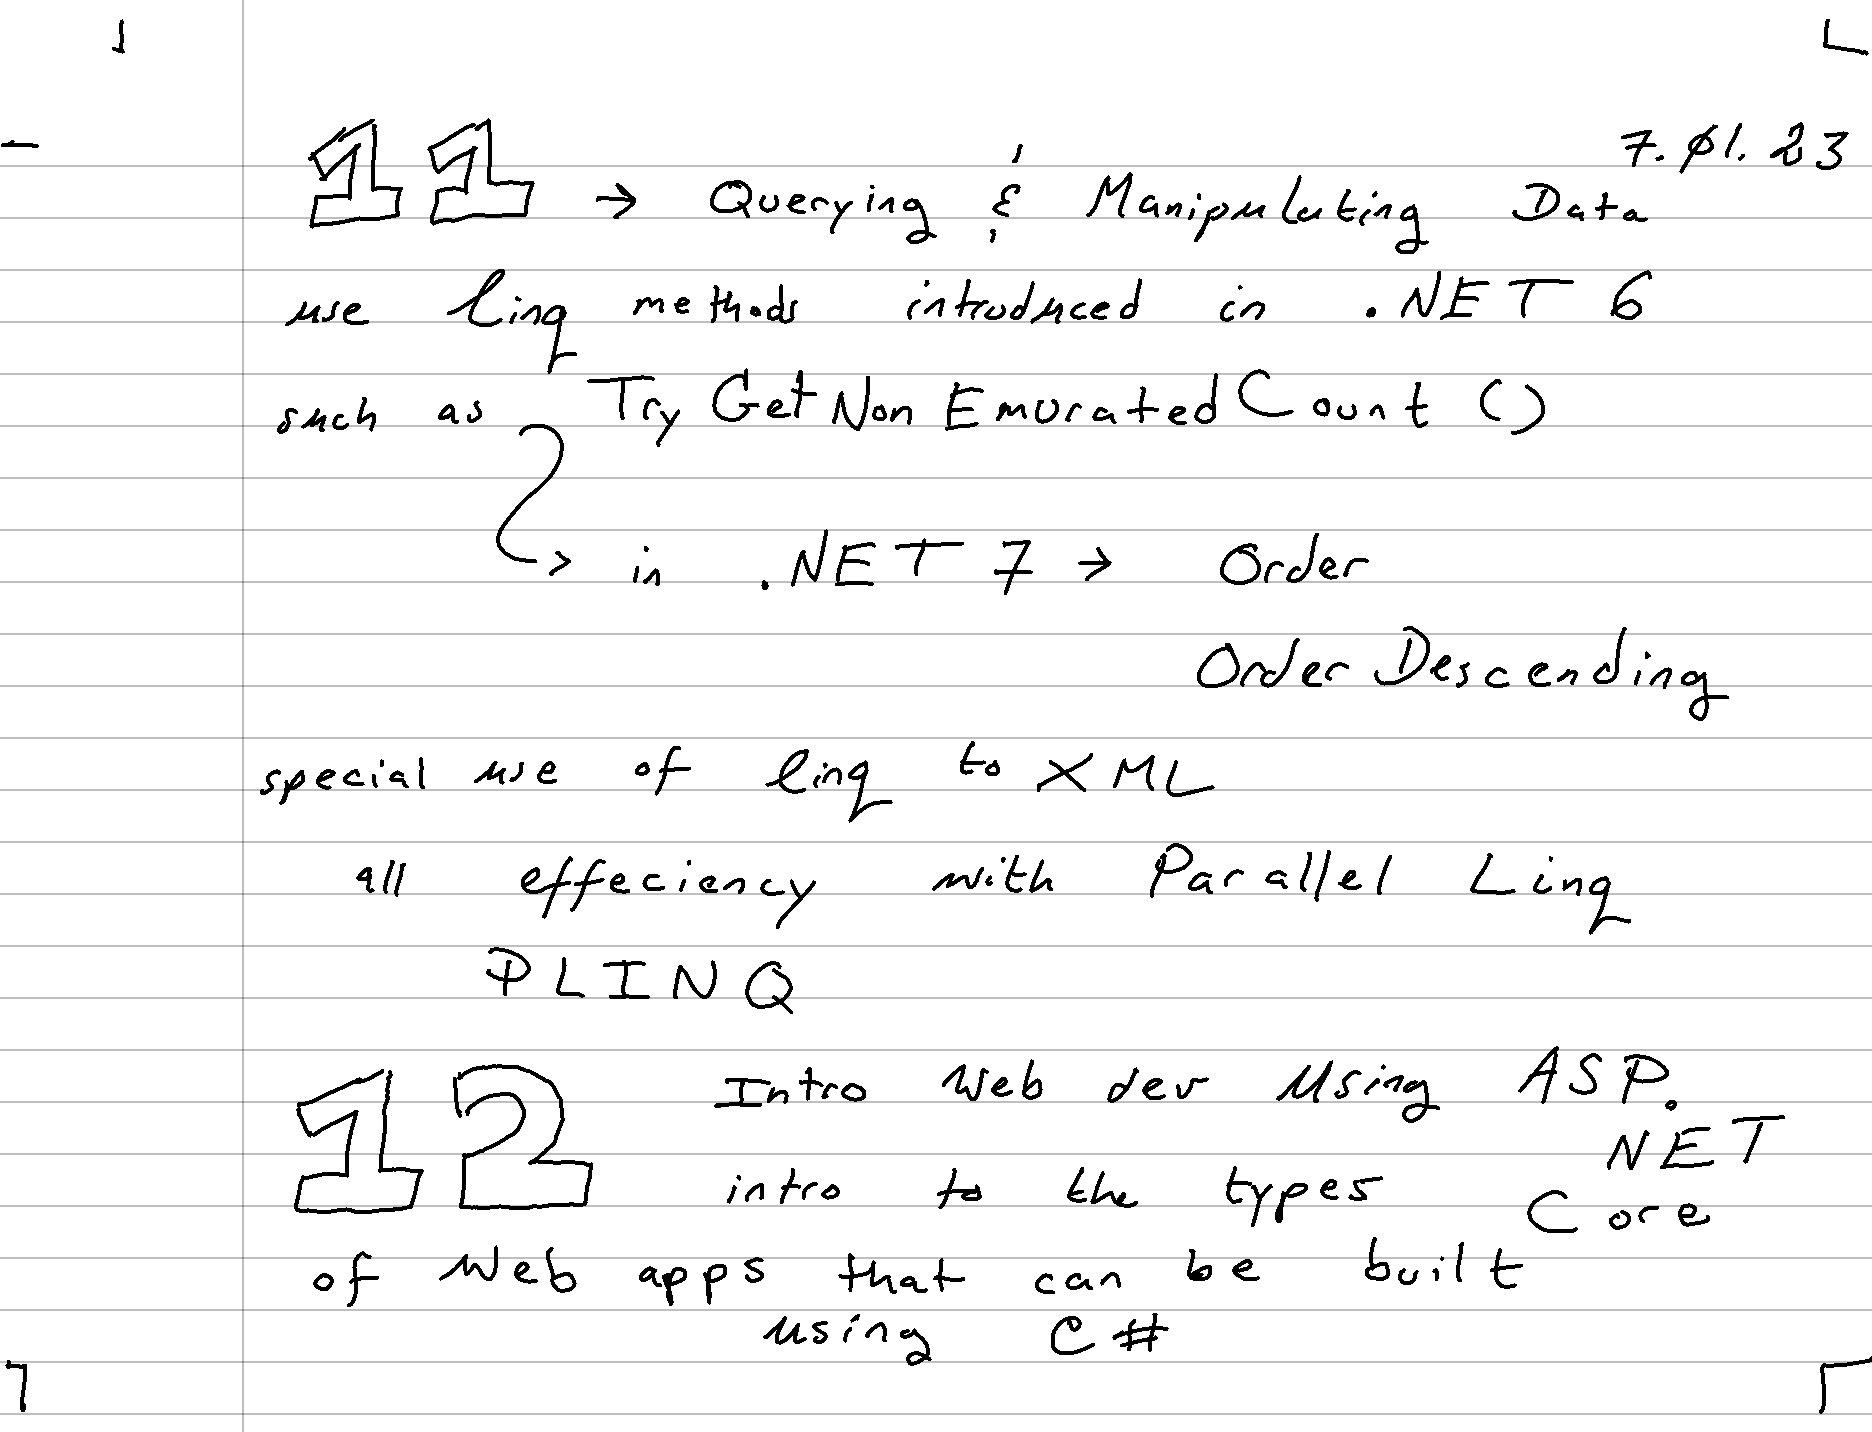 7.01.23
11 → Querying & Manipulating Data
use linq methods introduced in .NET 6
such as TryGetNonEmuratedCount ()
→ in .NET 7 → Order
OrderDescending
special use of linq to XML
all effeciency with Parallel Linq
PLINQ
12 Intro Web dev Using ASP.
NET
intro to the types
Core
of Web apps that can be built
using C#